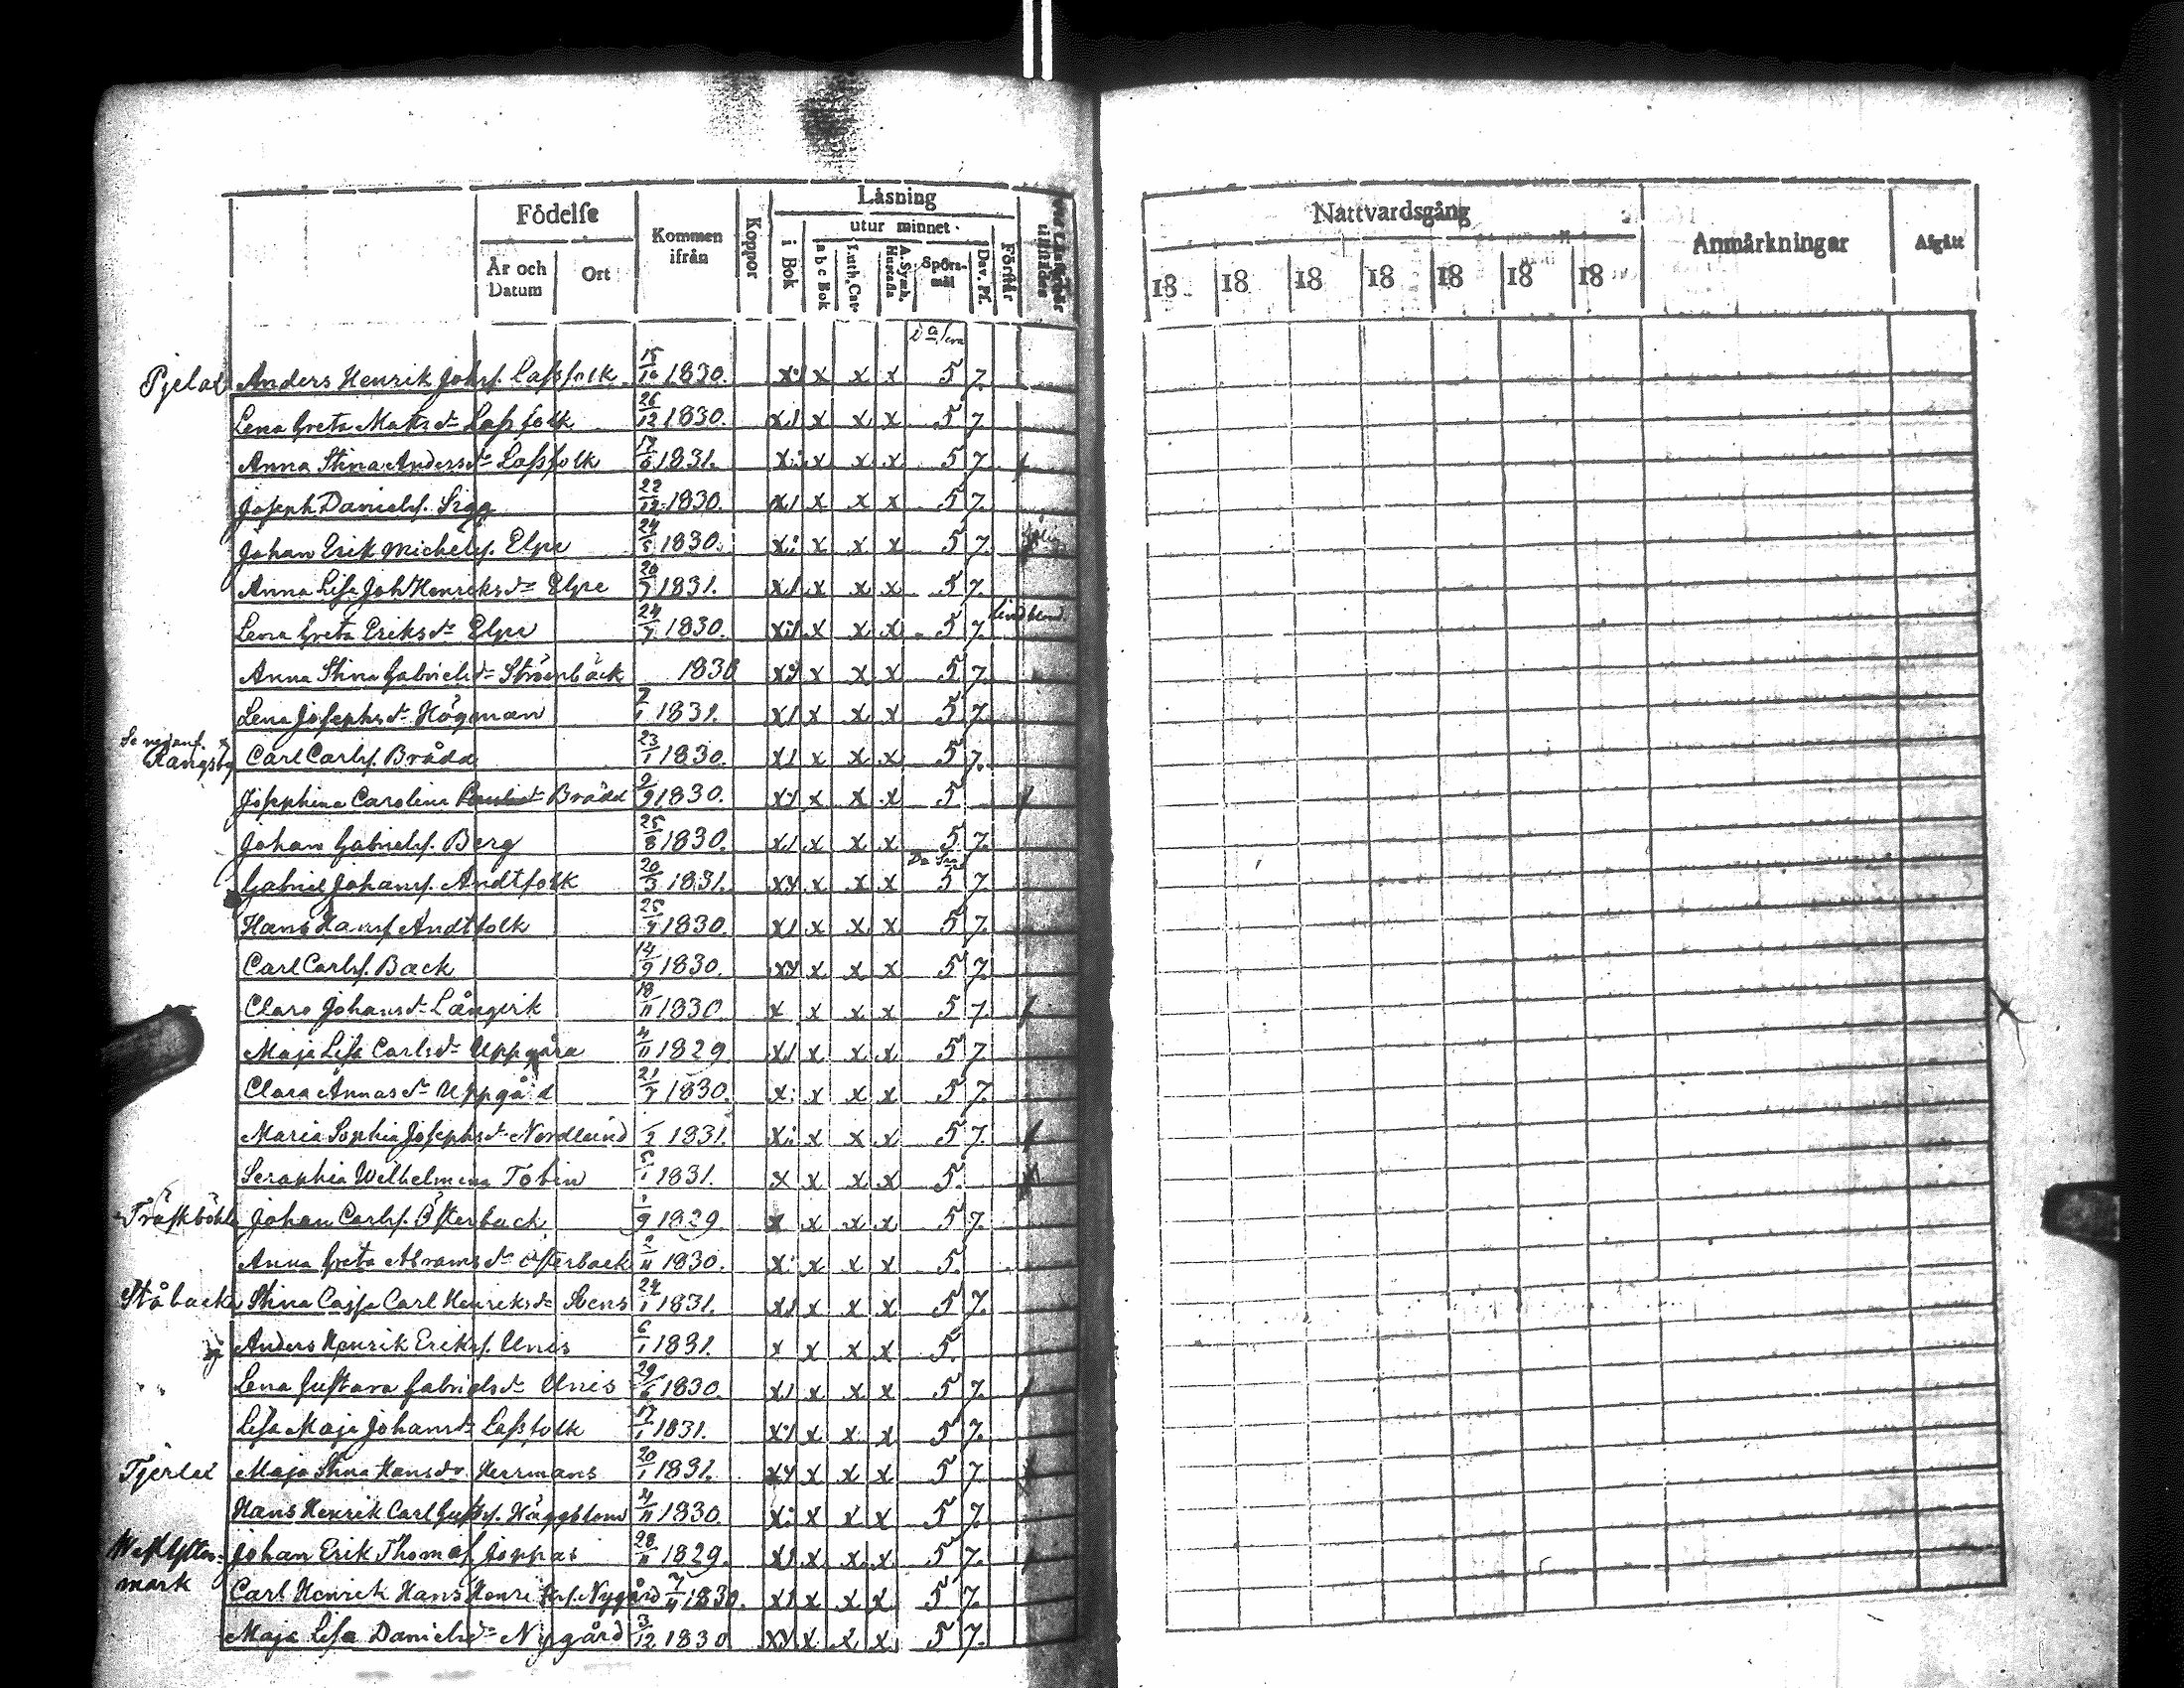 Födelse Kommen ifrån Koppor Läsning
utur minnet
År och Datum Ort i Bok abc Bok Luth. Cat. A. Symb. Hustafla Spörsmål Dav. Ps. Förstår
Nattvardsgång Anmärkningar Afgått
18 18 18 18 18 18 18
Pjelax Anders Henrik Johsf. Lassfolk 15/10 1830. x x x x 5 7.
Lena Greta Matsdr Lassfolk 26/12 1830. x x x x 5 7.
Anna Stina Andersdr Lassfolk 1831. x x x x 5 7.
Joseph Danielsf. Sigg 22/12 1830. x x x x 5 7.
Johan Erik Michelsf. Elpe 24/5 1830. x x x x 5 7.
Anna Lisa Joh Henriksdr Elpe 1831. x x x x 5 7.
Lena Greta Eriksdr Elpe 1830. x x x x 5 7.
Anna Stina Gabrielsdr Strömbäck 1830 x x x x 5 7.
Lena Josephsdr Högman 1831. x x x x 5 7.
Rangsby Carl Carlsf. Brådd 23/1 1830. x x x x 5 7.
Josephina Carolina Brådd 9/9 1830. x x x x 5
Johan Gabrielsf. Berg 25/8 1830. x x x x 5 7.
Gabriel Johansf. Andtfolk 20/3 1831. x x x x 5 7.
Hans Hansf. Andtfolk 1830. x x x x 5 7.
Carl Carlsf. Back 14/9 1830. x x x x 5 7.
Clara Johansdr Långerik 18/11 1830 x x x x 5 7.
Maja Lisa Carlsdr Uppgård 4/11 1829. x x x x 5 7.
Clara Annasdr Uppgård 21/7 1830. x x x x 5 7.
Maria Sophia Josephsdr Nordlund 1831. x x x x 5 7.
Seraphia Wilhelmina Tobin 1831. x x x x 5.
Träskböhle Johan Carlsf. Österback 1/9 1829. x x x x 5 7.
Anna Greta Abramsdr Österback 2/11 1830. x x x x 5.
Ståbacka Stina Cajsa Carl Henriksdr Stens 24/1 1831. x x x x 5 7.
Anders Henrik Eriksf. Unis 6/1 1831. x x x x 5.
Lena Gustava Gabrielsdr Unis 29/6 1830. x x x x 5 7.
Lisa Maja Johansdr Lassfolk 17/1 1831. x x x x 5 7.
Tjerlax Maja Stina Hansdr Herrmans 20/1 1831. x x x x 5 7.
Hans Henrik Carl Gustsf. Häggblom 4/11 1830. x x x x 5 7.
Westyttermark Johan Erik Thomasf. Joppas 28/11 1829. x x x x 5 7.
Carl Henrik Hans Henrikssf. Nygård 7/11 1830. x x x x 5 7.
Maja Lisa Danielsdr Nygård 3/12 1830 x x x x 5 7.